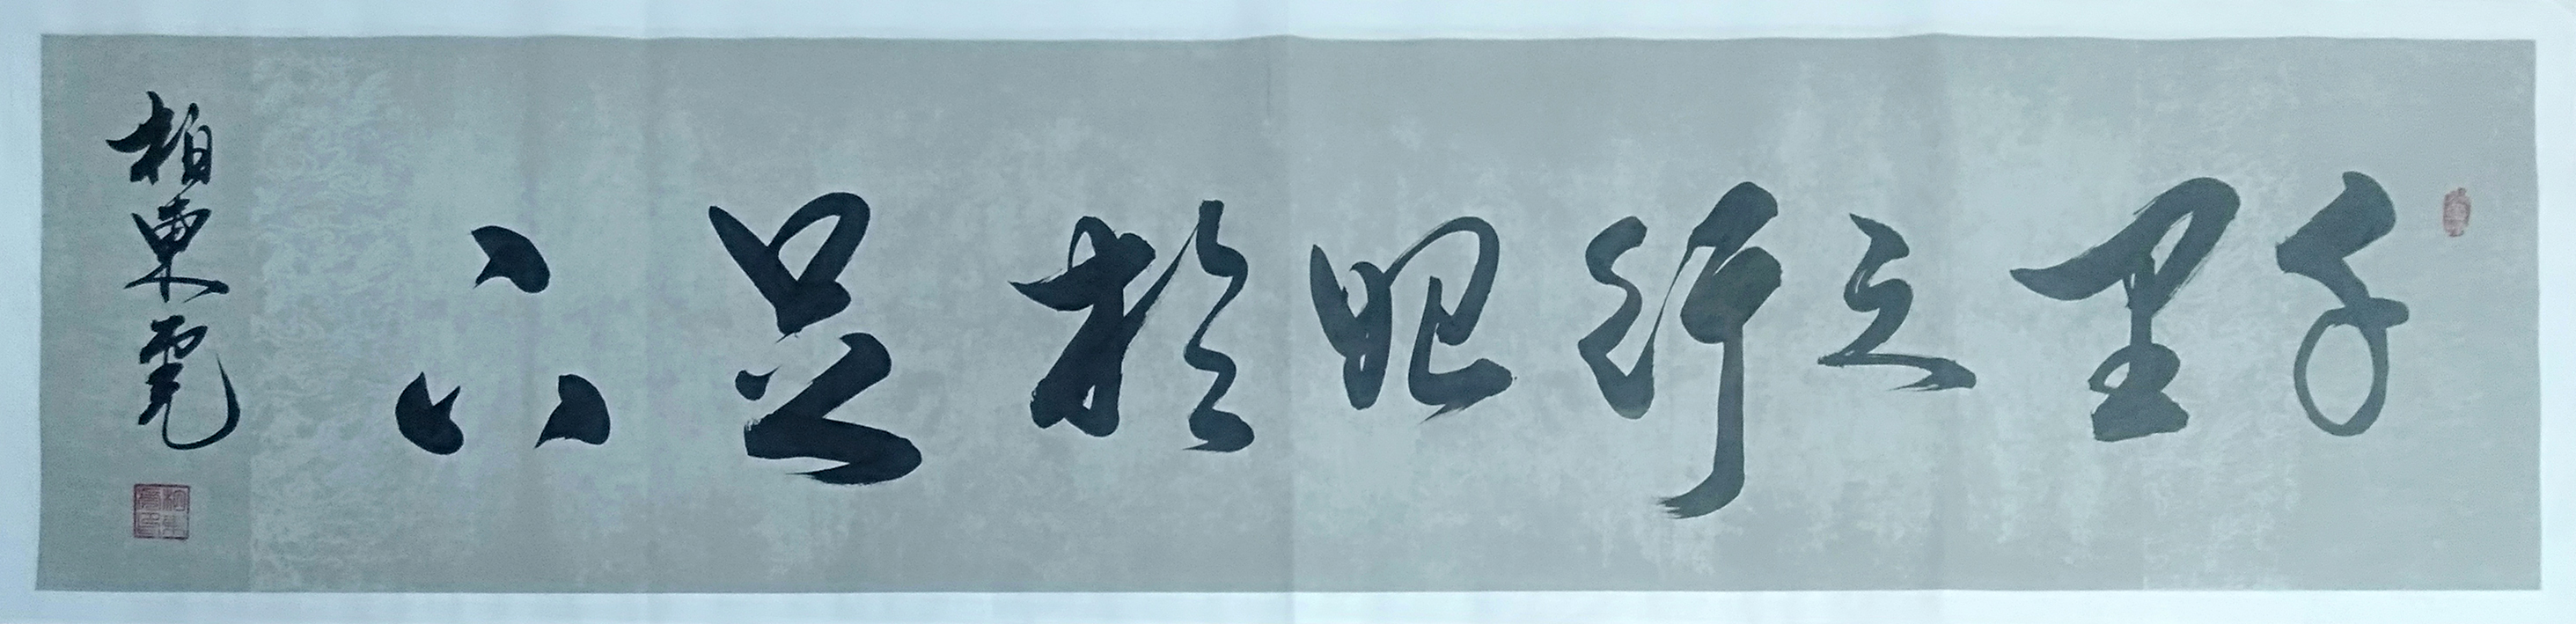 千里之行始於足下
柏東